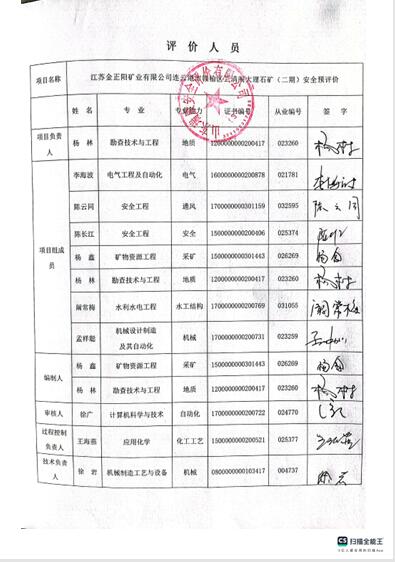 评 价 人 员
项目名称 江苏金正阳矿业有限公司连云港市赣榆区 大理石矿（二期）安全预评价
姓 名 专 业 专业能力 证书编号 从业编号 签 字
项目负责人 杨 林 勘查技术与工程 地质 1200000000200417 023260
项目组成员
李海波 电气工程及自动化 电气 1600000000200878 021781
陈云同 安全工程 通风 1700000000301159 032595 陈云同
陈长江 安全工程 安全 1500000000200406 025374
杨 鑫 矿物资源工程 采矿 1500000000301443 026269
杨 林 勘查技术与工程 地质 1200000000200417 023260
阚常梅 水利水电工程 水工结构 1700000000200769 031055 阚常梅
孟祥聪 机械设计制造及其自动化 机械 1700000000200731 023259
编制人
杨 鑫 矿物资源工程 采矿 1500000000301443 026269
杨 林 勘查技术与工程 地质 1200000000200417 023260
审核人 徐广 计算机科学与技术 自动化 1700000000200722 024770
过程控制负责人 王海燕 应用化学 化工工艺 1500000000200521 025377
技术负责人 徐 岩 机械制造工艺与设备 机械 0800000000103417 004737
CS 扫描全能王